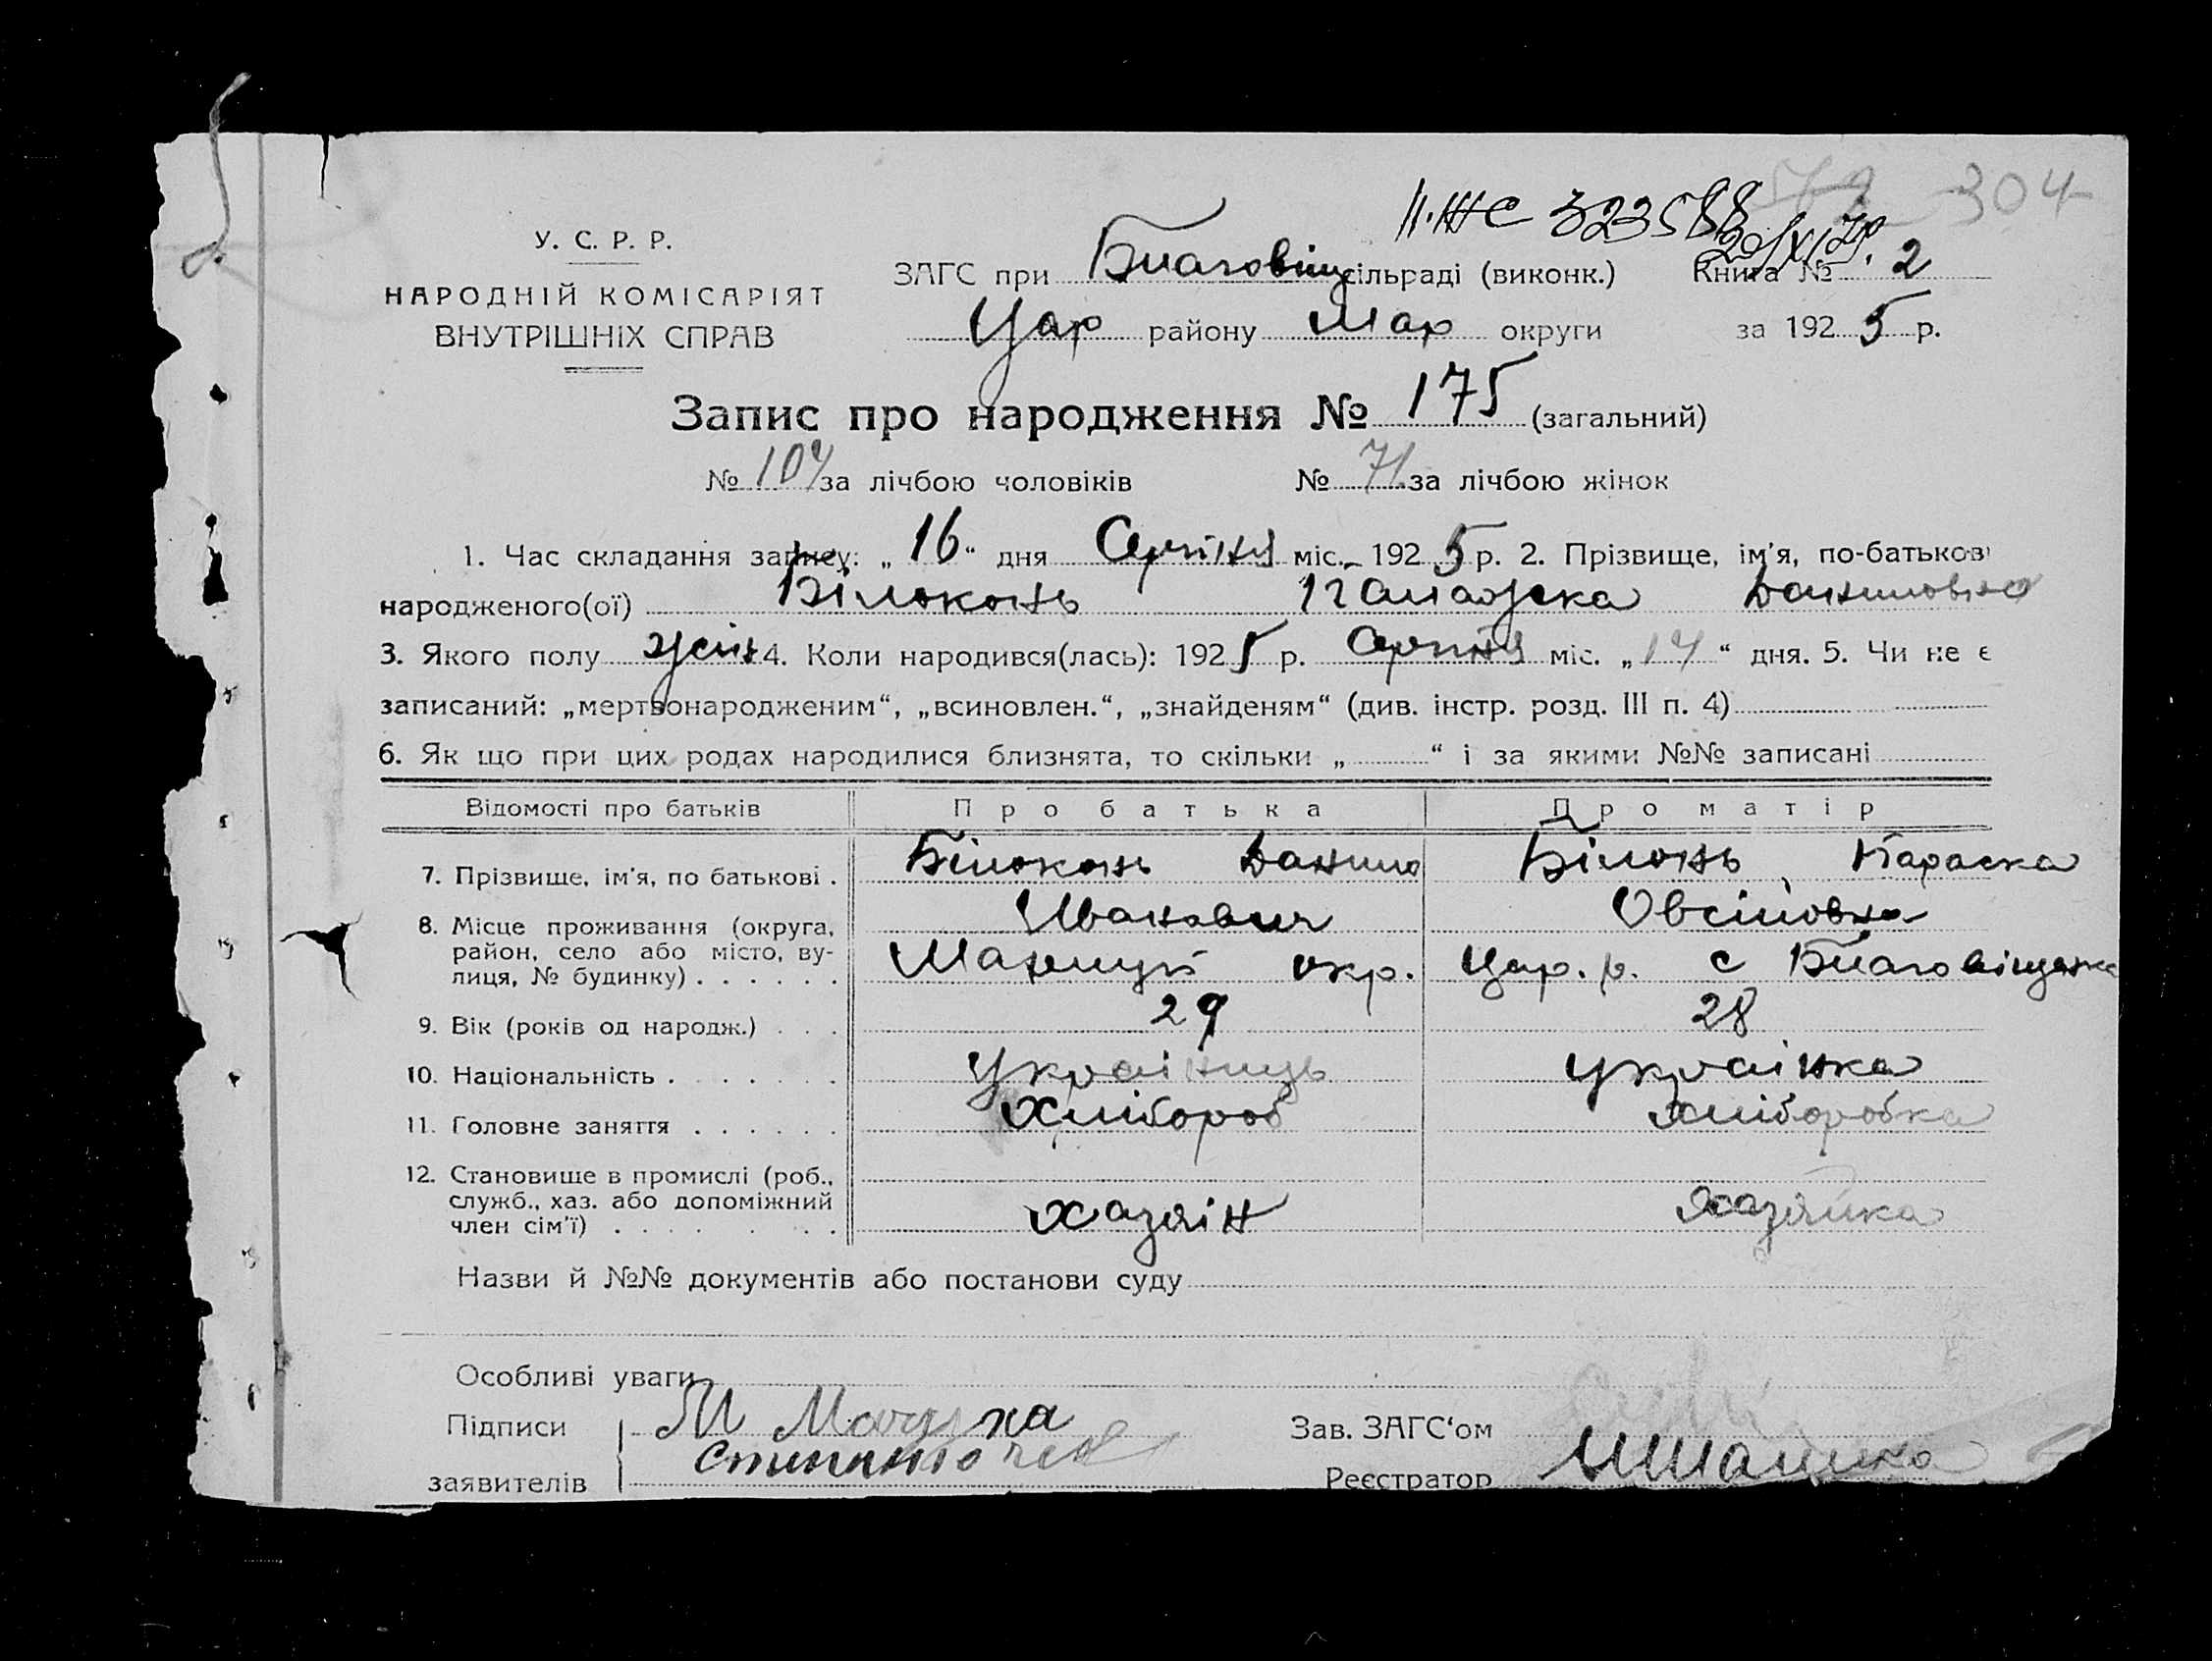 304
II-ЖС 323588
У. С. Р. Р.
НАРОДНІЙ КОМІСАРІЯТ
ВНУТРІШНІХ СПРАВ
ЗАГС при Благовіщ сільраді (виконк.) Книга № 2
Цар району Мар округи за 192 5 р.
Запис про народження № 175 (загальний)
№ 104 за лічбою чоловіків № 71 за лічбою жінок
1. Час складання запису: „ 16 “ дня Серпня міс. 192 5 р. 2. Прізвище, ім'я, по-батькові
народженого(ої) Білоконь Даниловна
3. Якого полу жін 4. Коли народився(лась): 192 5 р. Серпня міс. „ 14 “ дня. 5. Чи не є
записаний: „мертвонародженим“, „всиновлен.“, „знайденям“ (див. інстр. розд. III п. 4)
6. Як що при цих родах народилися близнята, то скільки „ “ і за якими №№ записані
Відомості про батьків Про батька Про матір
7. Прізвище, ім'я, по батькові . Білоконь Данило Білонь Параска
Иванович Овсіповна
8. Місце проживання (округа, район, село або місто, вулиця, № будинку) . . . . . . Маріуп окр. Цар. р. с Благовіщенка
9. Вік (років од народж.) . . . 29 28
10. Національність . . . . . . . Українець українка
11. Головне заняття . . . . . . Хлібороб хліборобка
12. Становище в промислі (роб., служб., хаз. або допоміжний член сім'ї) . . . . . . . хазяін хазяйка
Назви й №№ документів або постанови суду
Особливі уваги
Підписи
заявителів
Зав. ЗАГС‘ом
Реєстратор